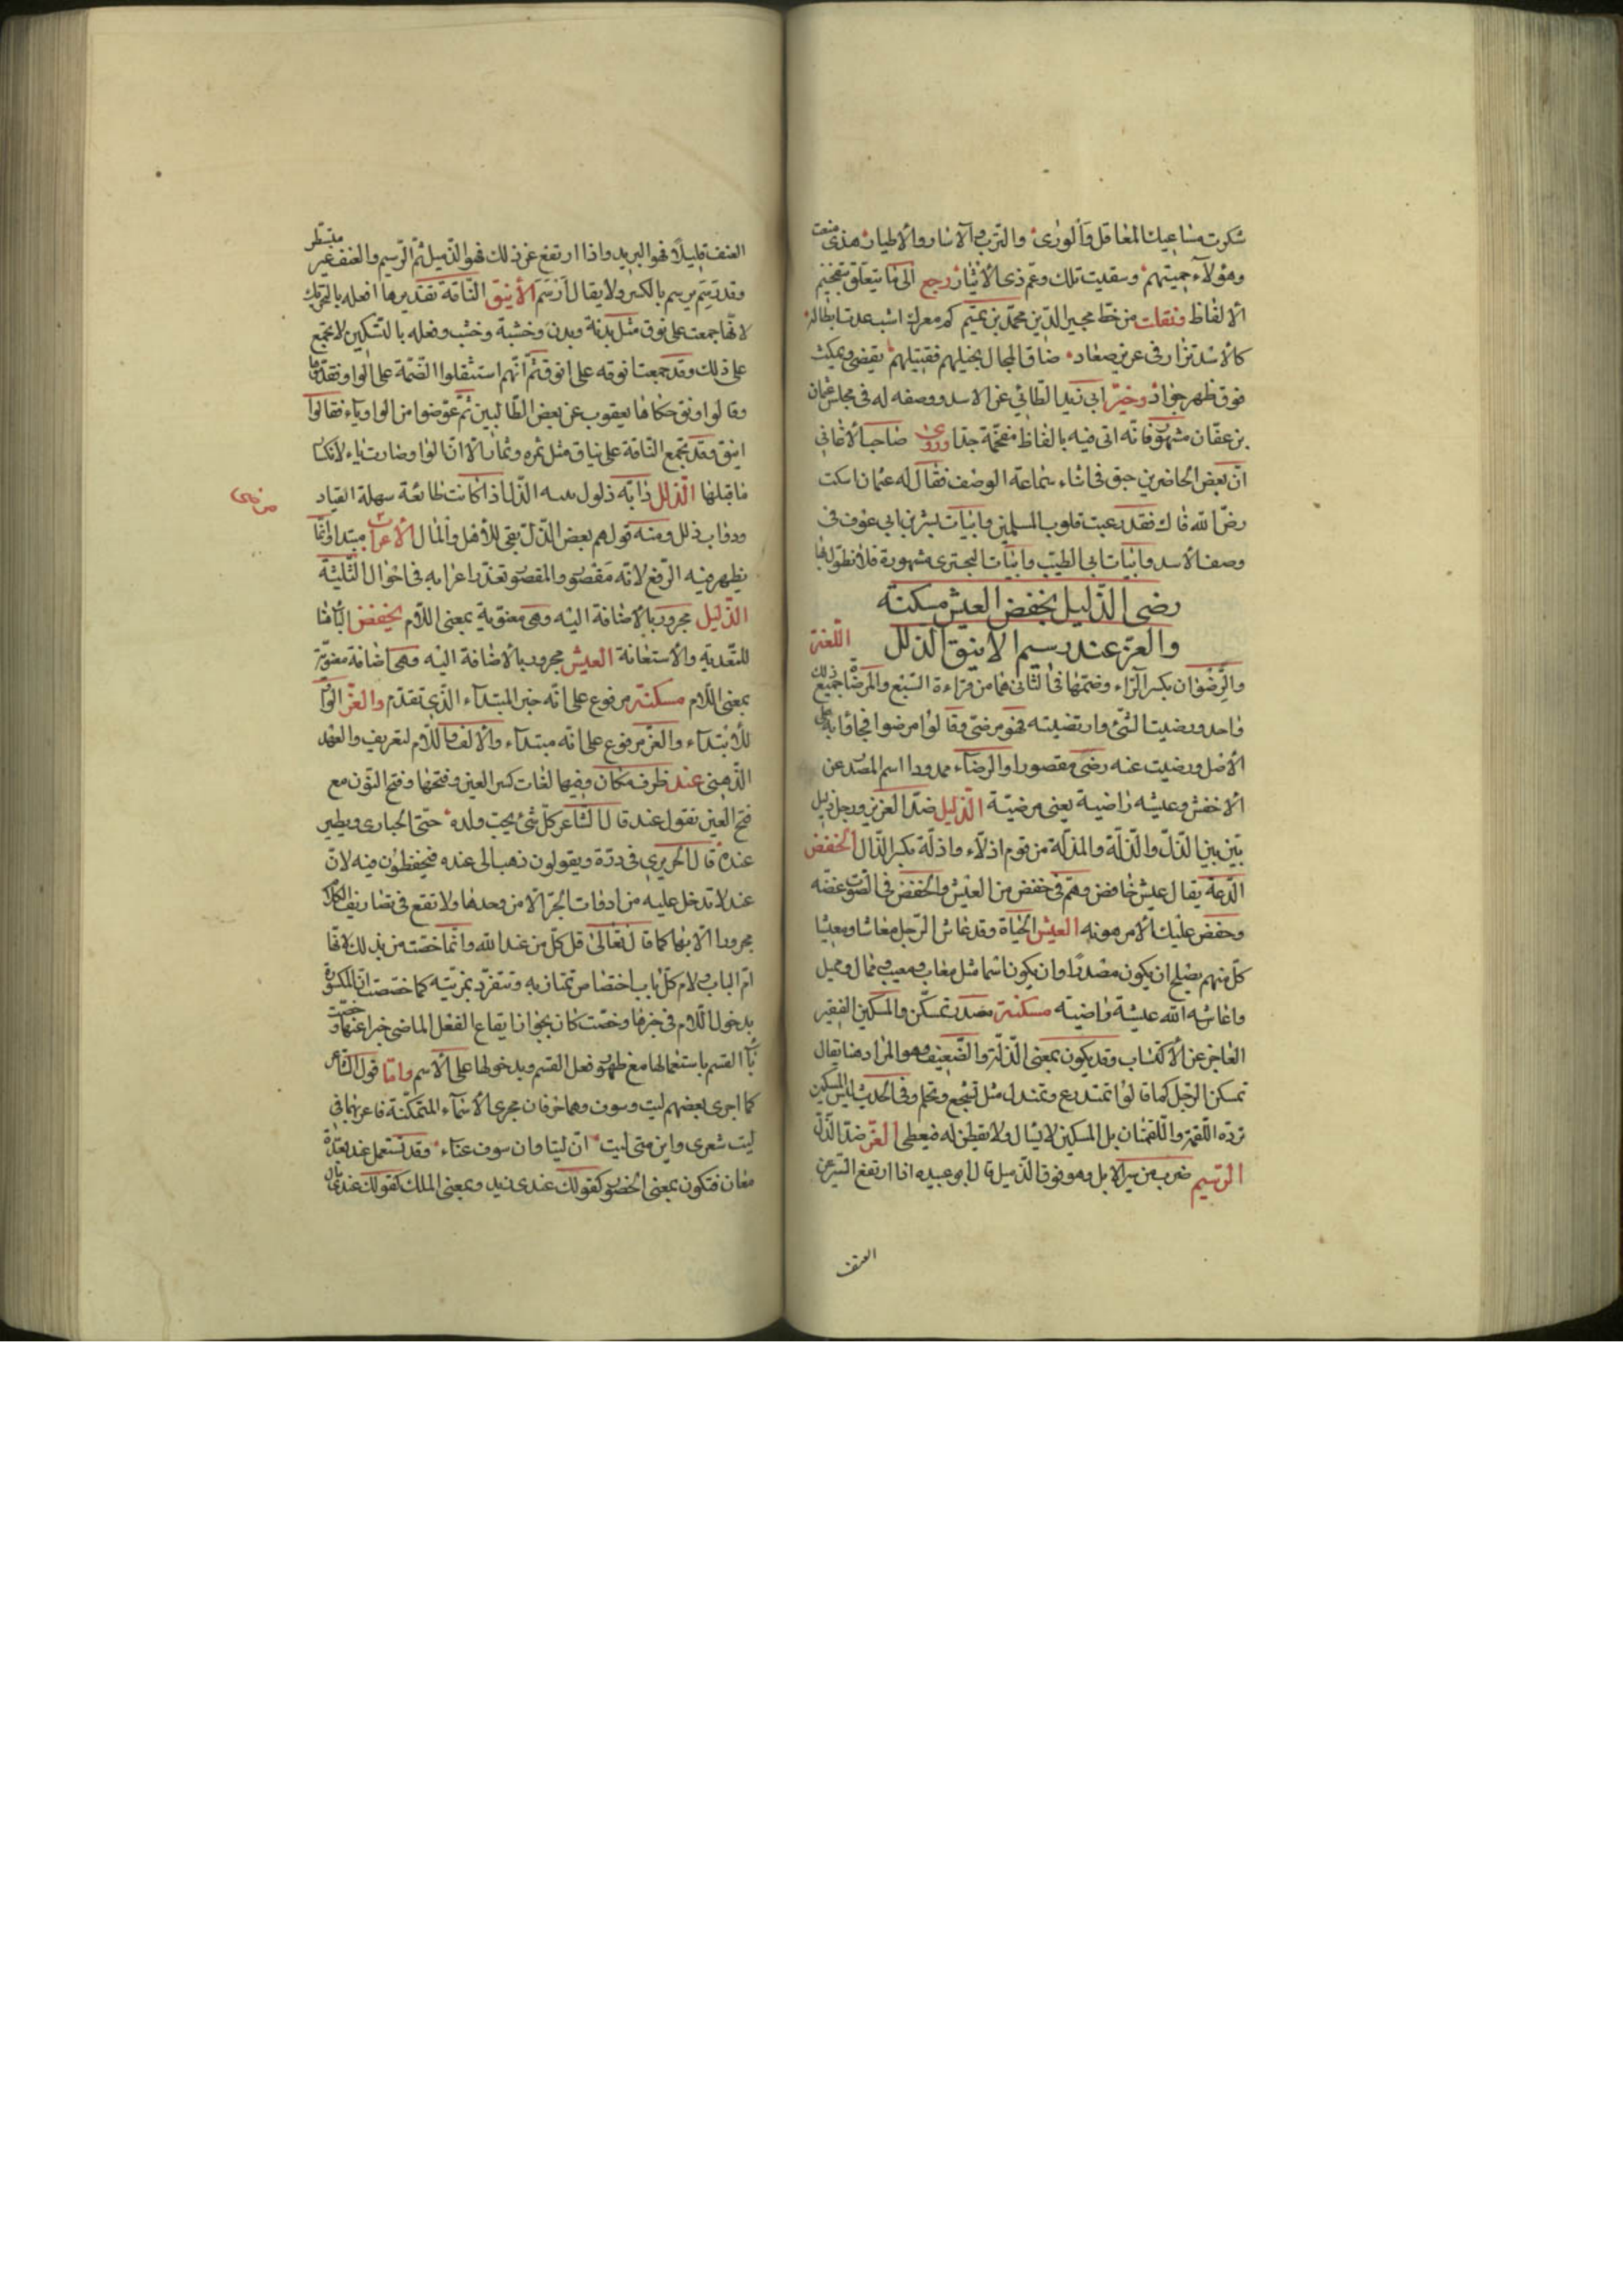 شكرت مساعيك المعاقل والورى والترب والآساد والاطيار هذى منعت
وهؤلاء حميتهم وسقيت تلك وعم ذى الايثار رجع الى ما يتعلق بتفخيم
الالفاظ ونقلت من خط مجير الدين محمد بن تميم كم معرك اشبعدت ابطاله
كالاسد تزار فى عرين صعاد ضاق المجال بخيلهم فقتيلهم يقضى ويمكث
فوق ظهر جواد وخبر ابى زبيد الطائى عن الاسد ووصفه له فى مجلس عثمان
بن عفان مشهور فانه اتى فيه بالفاظ مفخمة جدا وروى صاحب الاغانى
ان بعض الحاضرين حبق فى اثناء سماعه الوصف فقال له عثمان اسكت
رض الله فاك فقد رعبت قلوب المسلمين وابيات بشر بن ابى عوف فى
وصف الاسد وابيات ابى الطيب وابيات البحترى مشهورة فلا نطول بها
رضى الذليل بخفض العيش مسكنة
والعز عند رسيم الاينق الذلل اللغة
والرضوان بكسر الراء وضمها فى الثانى هما من قراءة السبع والمرضاة جميع ذلك
واحد ورضيت الشئ وارتضيته فهو مرضى وقالوا مرضوا فجاؤا به على
الاصل ورضيت عنه رضى مقصورا والرضاء ممدودا اسم المصدر عن
الاخفش وعيشه راضية يعنى مرضية الذليل ضد العزيز ورجل ذليل
بين بين الذل والذلة والمذلة من قوم اذلاء واذلة بكسر الذال الخفض
الدعة يقال عيش خافض وهم فى خفض من العيش والخفض فى الصوت غضه
وخفض عليك الامر هونه العيش الحياة وقد عاش الرجل معاشا ومعيشا
كل منهم يصلح ان يكون مصدرا وان يكون اسما مثل معاب ومعيب وممال ومميل
واعاشه الله عيشة راضية مسكنة مصدر تمسكن والمسكين الفقير
العاجز عن الاكتساب وقد يكون بمعنى الذلة والضعيف وهو المراد هنا يقال
تمسكن الرجل كما قالوا تمدرع وتمندل مثل تشجع وتحلم وفى الحديث ليس المسكين
ترده اللقمة واللقمتان بل المسكين لا يسال ولا يفطن له فيعطى العز ضد الذل
الرسيم ضرب من سير الابل وهو فوق الذميل قال ابو عبيده اذا ارتفع السير عن
العنف
العنف قليلا فهو البريد واذا ارتفع عن ذلك فهو الذميل ثم الرسيم والعنف غير مبتسطر
وقد رسم يرسم بالكسر ولا يقال ارسم الاينق الناقة تقديرها افعله بالتحريك
لانها جمعت على نوق مثل بدنة وبدن وخشبة وخشب وفعله بالتسكين لا يجمع
على ذلك وقد جمعت انوقه على انوق ثم انهم استثقلوا الضمة على الواو فقدموها
وقالوا اونق حكاها يعقوب عن بعض الطائيين ثم عوضوا من الواو ياء فقالوا
اينق وقد تجمع الناقة على نياق مثل ثمره وثمار الا ان الواو صارت ياء لانكسار
ما قبلها الذلل دابه ذلول الذل اذا كانت طائعة سهلة القياد
ودواب ذلل ومنه قولهم بعض الذل يبقى للاهل والمال الاعراب مبتدا وانما رضى
يظهر فيه الرفع لانه مقصور والمقصور تعذر اعرابه فى احوال الثلثة
الذليل مجرور بالاضافة اليه وهى معنوية بمعنى اللام بخفض الباء هنا
للتعدية والاستعانة العيش مجرور بالاضافة اليه وهى اضافة معنوية
بمعنى اللام مسكنة مرفوع على انه خبر المبتداء الذى تقدم والعز الواو
للابتداء والعز مرفوع على انه مبتداء والالف واللام لتعريف والعهد
الذهنى عند ظرف مكان وفيها لغات كسر العين وفتحها وفتح النون مع
فتح العين تقول عند قال الشاعر كل شئ يحب ولده حتى الحبارى ويطير
عنده قال الحريرى فى درة ويقولون ذهب الى عنده فيخطؤن فيه لان
عند لا تدخل عليه من ادوات الجر الا من وحدها ولا تقع فى تصاريف الكلام
مجرورا الا بها كما قال تعالى قل كل من عند الله وانما خصت من بذلك لانها
ام الباب ولام كل باب اختصاص تمتاز به وتنفرد بمزيته كما خصصت ان المكسورة
بدخول اللام فى خبرها وخصت كان بجواز ايقاع الفعل الماضى خبرا عنها وخصت
باء القسم باستعمالها مع ظهور فعل القسم وبدخولها على الاسم واما قول الشاعر
كما اجرى بعضهم ليت وسوف وهما حرفان مجرى الاسماء المتمكنة فاعربهما فى
ليت شعرى واين منى ليت ان ليتا وان سوف عناء وقد تستعمل عند بعدة
معان فتكون بمعنى الحضور كقولك عندى زيد وبمعنى الملك كقولك عندى مال